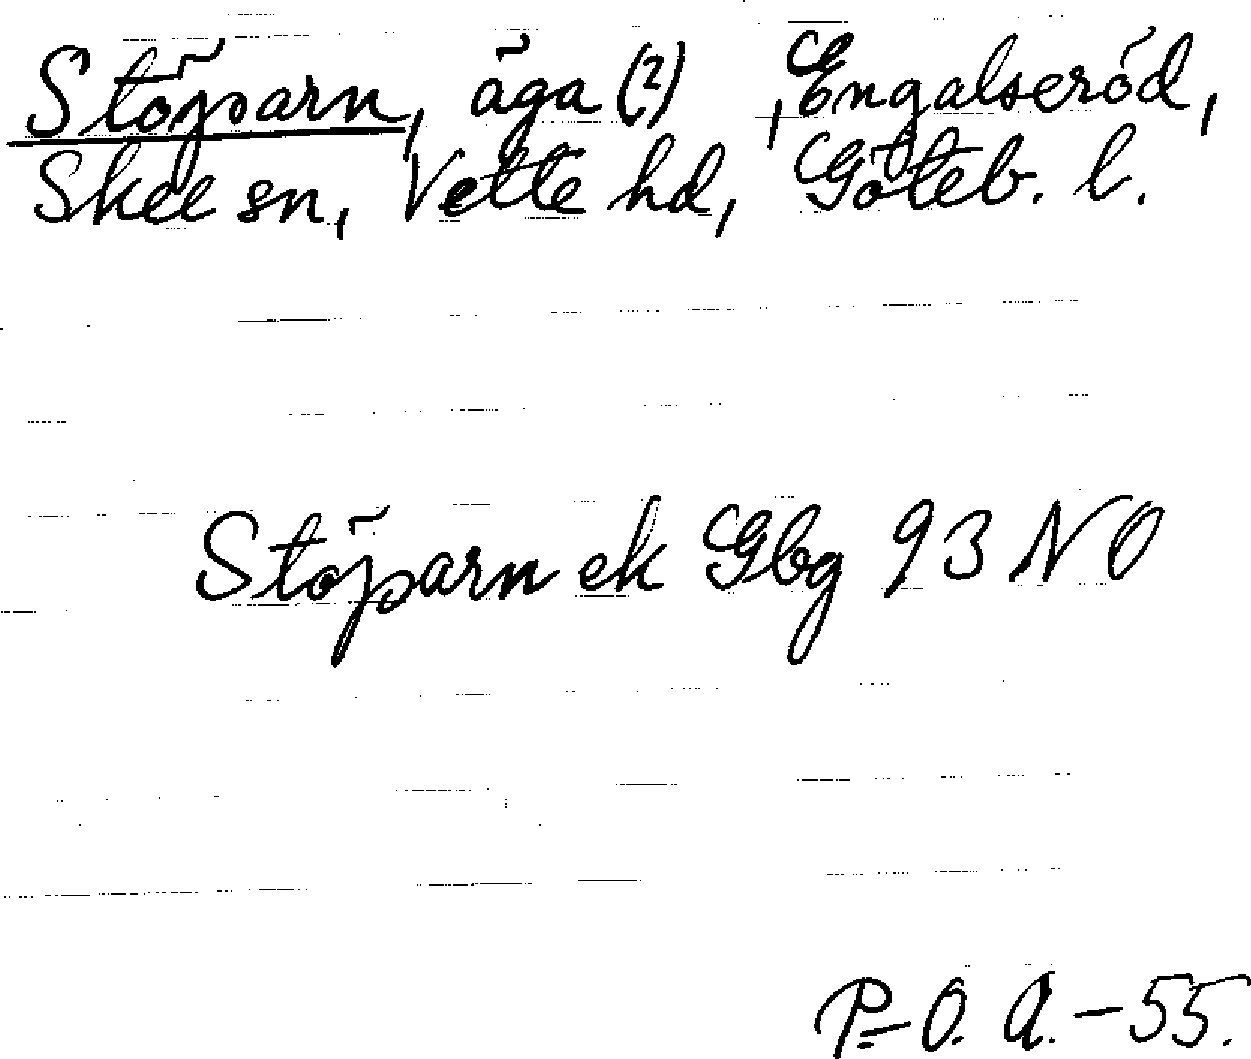 Stöparn, äga (?) , Engalseröd,
Skee sn, Vette hd, Göteb. l.
Stöparn ek Gbg 93 NO
P.-O. A. - 55.